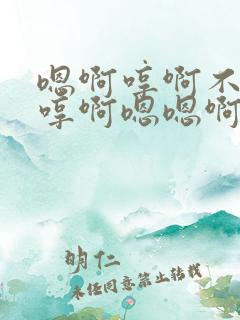 嗯啊哼啊不
哼啊嗯嗯啊
明仁
未经同意禁止转载